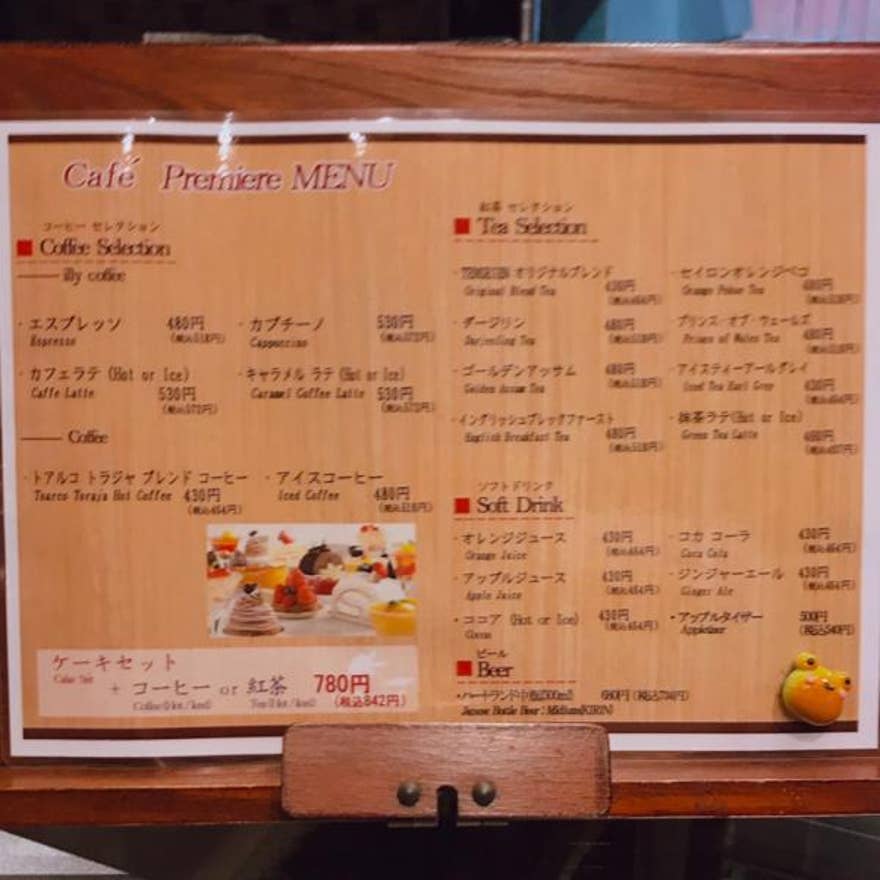 Café Premiere MENU
コーヒー セレクション
Coffee Selection
illy coffee
・エスプレッソ 480円
Espresso (税込518円)
・カプチーノ 530円
Cappuccino (税込572円)
・カフェラテ (Hot or Ice)
Caffe Latte 530円
(税込572円)
・キャラメル ラテ (Hot or Ice)
Caramel Coffee Latte 530円
(税込572円)
Coffee
・トアルコ トラジャ ブレンド コーヒー
Toarco Toraja Hot Coffee 430円
(税込464円)
・アイスコーヒー
Iced Coffee 480円
(税込518円)
ケーキセット
Cake Set
+ コーヒー or 紅茶 780円
Coffee(Hot/Iced) Tea(Hot/Iced) (税込842円)
紅茶 セレクション
Tea Selection
オリジナルブレンド 430円
Original Blend Tea (税込464円)
・セイロンオレンジペコ 480円
Orange Pekoe Tea (税込518円)
・ダージリン 480円
Darjeeling Tea (税込518円)
プリンス・オブ・ウェールズ 480円
Prince of Wales Tea (税込518円)
・ゴールデンアッサム 480円
Golden Assam Tea (税込518円)
・アイスティーアールグレイ
Iced Tea Earl Grey 430円
(税込464円)
・イングリッシュブレックファースト
English Breakfast Tea 480円
(税込518円)
・抹茶ラテ(Hot or Ice)
Green Tea Latte
ソフトドリンク
Soft Drink
・オレンジジュース 430円
Orange Juice (税込464円)
・コカ コーラ 430円
Coca Cola (税込464円)
・アップルジュース 430円
Apple Juice (税込464円)
・ジンジャーエール 430円
Ginger Ale (税込464円)
・ココア (Hot or Ice) 430円
Cocoa (税込464円)
・アップルタイザー 500円
Appletiser (税込540円)
ビール
Beer
・ハートランド中瓶(500ml)
Japanese Bottle Beer : Midium(KIRIN)